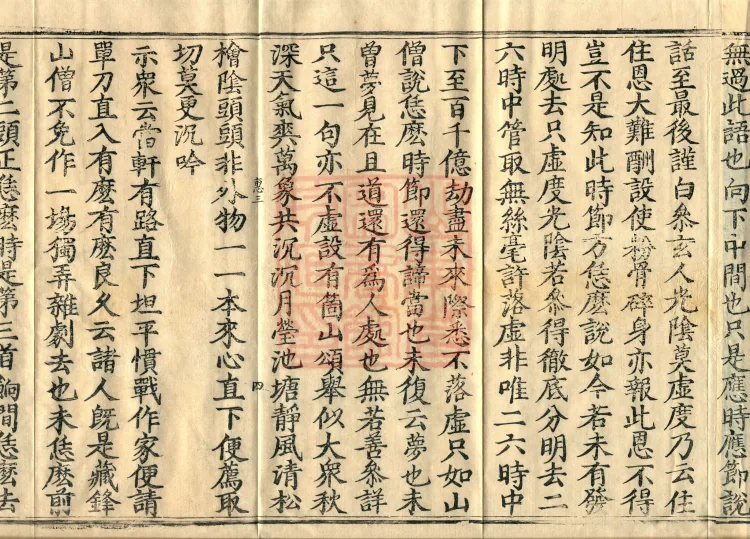 無過此語也向下中間也只是應時應節說
話至最後謹白參玄人光陰莫虛度乃云住
住恩大難酬設使粉骨碎身亦報此恩不得
豈不是知此時節方恁麽說如今若未有發
明處去只虛度光陰若參得徹底分明去二
六時中管取無絲毫許落虛非唯二六時中
下至百千億劫盡未來際悉不落虛只如山
僧說恁麽時節還得諦當也未復云夢也未
曾夢見在且道還有爲人處也無若善參詳
只這一句亦不虛設有箇山頌舉似大衆秋
深天氣爽萬象共沉沉月瑩池塘靜風清松
惠三
四
檜陰頭頭非外物一一本來心直下便薦取
切莫更沉吟
示衆云當軒有路直下坦平慣戰作家便請
單刀直入有麽有麽良久云諸人旣是藏鋒
山僧不免作一場獨弄雜劇去也未恁麽前
是第二頭正恁麽時是第三首餉間恁麽去